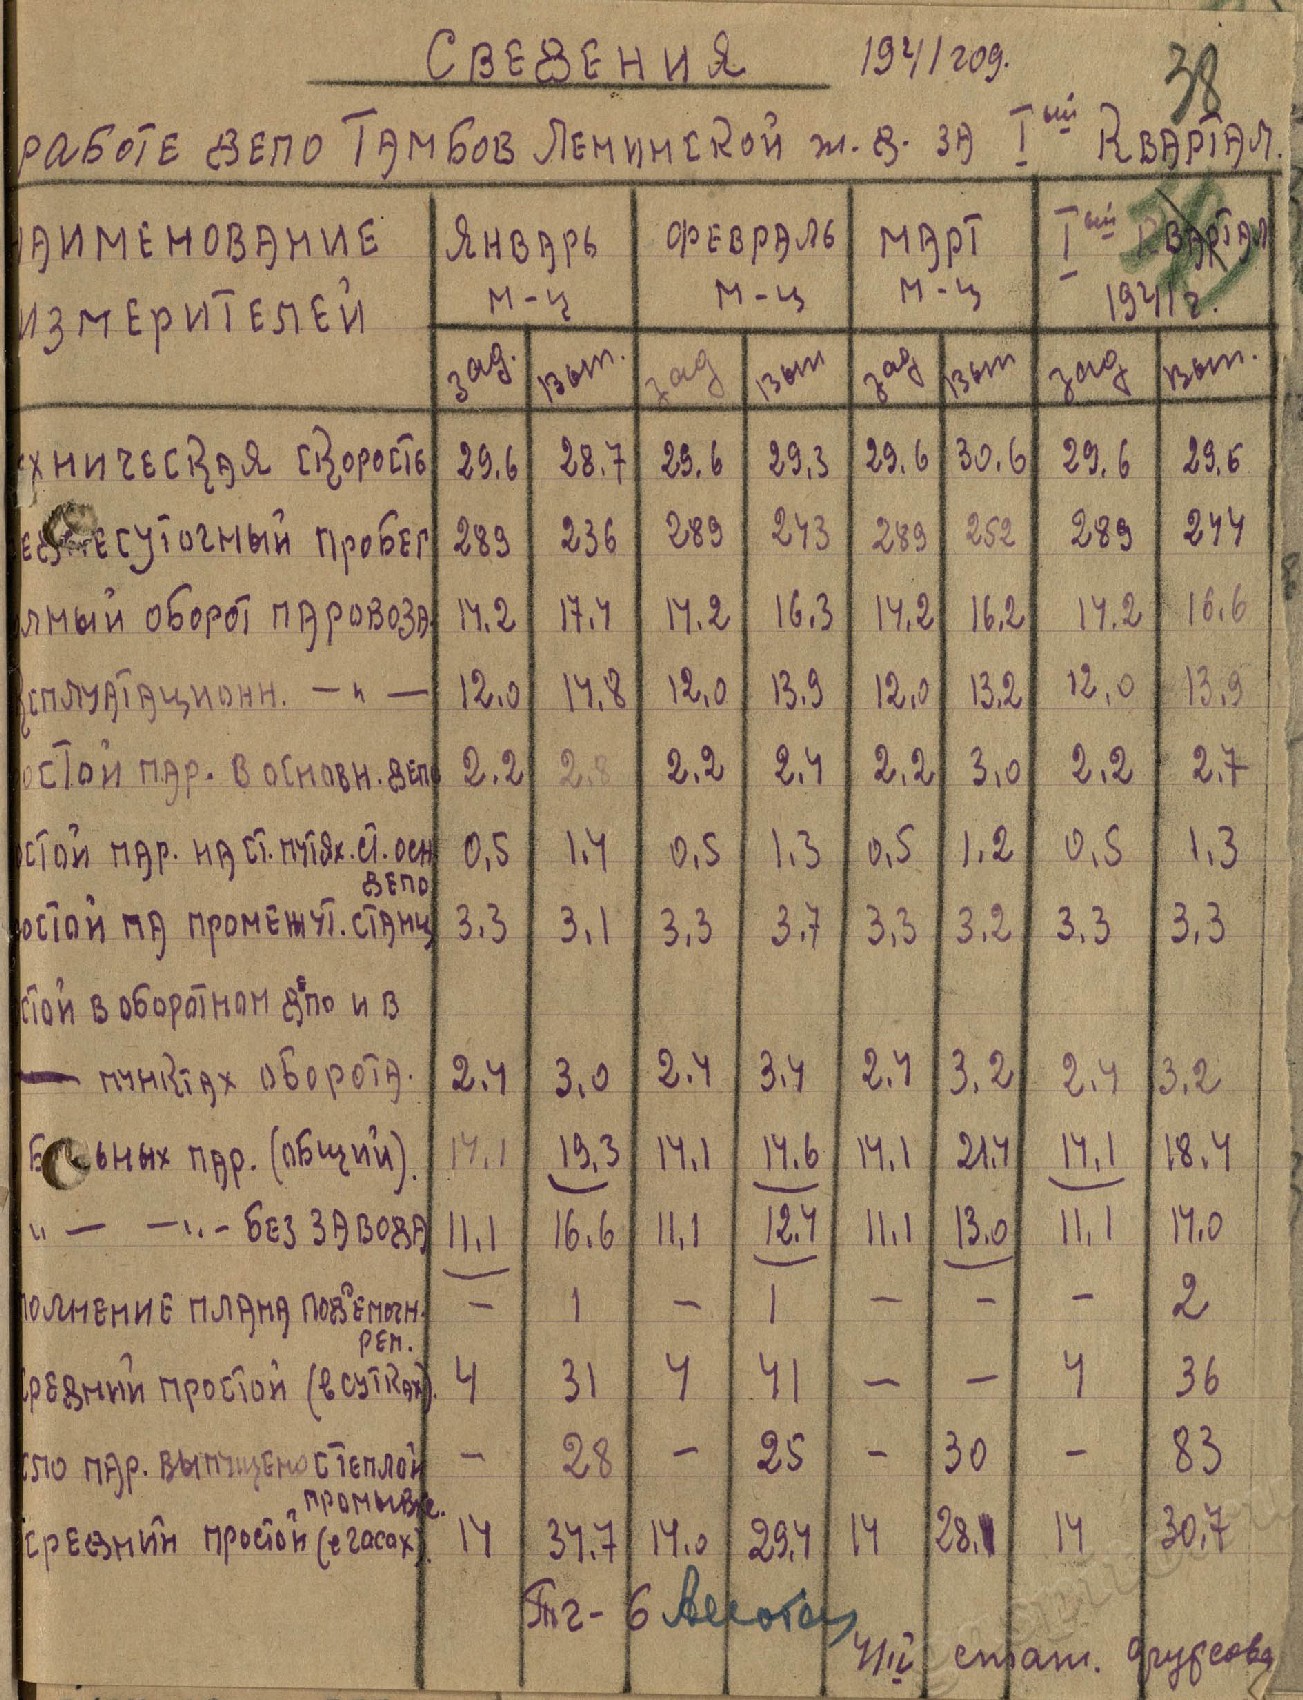 СВЕДЕНИЯ 1941 год.
38
РАБОТЕ ДЕПО ТАМБОВ ЛЕНИНСКОЙ Ж.Д. ЗА Iый КВАРТАЛ.
НАИМЕНОВАНИЕ ИЗМЕРИТЕЛЕЙ | ЯНВАРЬ М-Ц | ФЕВРАЛЬ М-Ц | МАРТ М-Ц | Iый КВАРТАЛ 1941 г.
зад. | вып. | зад | вып | зад | вып | зад | вып.
ХНИЧЕСКАЯ СКОРОСТЬ | 29.6 | 28.7 | 29.6 | 29.3 | 29.6 | 30.6 | 29.6 | 29.6
ЕСУТОЧНЫЙ ПРОБЕГ | 289 | 236 | 289 | 243 | 289 | 252 | 289 | 244
ЛНЫЙ ОБОРОТ ПАРОВОЗА | 14.2 | 17.4 | 14.2 | 16.3 | 14.2 | 16.2 | 14.2 | 16.6
СПЛУАТАЦИОНН. — " — | 12.0 | 14.8 | 12.0 | 13.9 | 12.0 | 13.2 | 12.0 | 13.9
ОСТОЙ ПАР. В ОСНОВН. ДЕПО | 2.2 | 2.8 | 2.2 | 2.4 | 2.2 | 3.0 | 2.2 | 2.7
ОСТОЙ ПАР. НА СТ. ПУТЯХ. СТ. ОСН ДЕПО | 0,5 | 1.4 | 0,5 | 1.3 | 0,5 | 1.2 | 0,5 | 1.3
ОСТОЙ НА ПРОМЕЖУТ. СТАНЦ | 3.3 | 3.1 | 3,3 | 3.7 | 3,3 | 3.2 | 3.3 | 3,3
СТОЙ В ОБОРОТНОМ ДЕПО И В
— ПУНКТАХ ОБОРОТА. | 2.4 | 3.0 | 2.4 | 3.4 | 2.4 | 3.2 | 2.4 | 3.2
ЬНЫХ ПАР. (ОБЩИЙ). | 14.1 | 19.3 | 14.1 | 14.6 | 14.1 | 21.4 | 14.1 | 18.4
" — — " - БЕЗ ЗАВОДА | 11.1 | 16.6 | 11.1 | 12.4 | 11.1 | 13.0 | 11.1 | 14.0
ПОЛНЕНИЕ ПЛАНА ПОДЪЕМОЧН. РЕМ. | - | 1 | - | 1 | - | - | - | 2
СРЕДНИЙ ПРОСТОЙ (в СУТКАХ). | 4 | 31 | 4 | 41 | - | - | 4 | 36
СЛО ПАР. ВЫПУЩЕНО С ТЕПЛОЙ ПРОМЫВК. | - | 28 | - | 25 | - | 30 | - | 83
СРЕДНИЙ ПРОСТОЙ (в ЧАСАХ). | 14 | 34.7 | 14.0 | 29.4 | 14 | 28.1 | 14 | 30.7
Тч-6
стат.